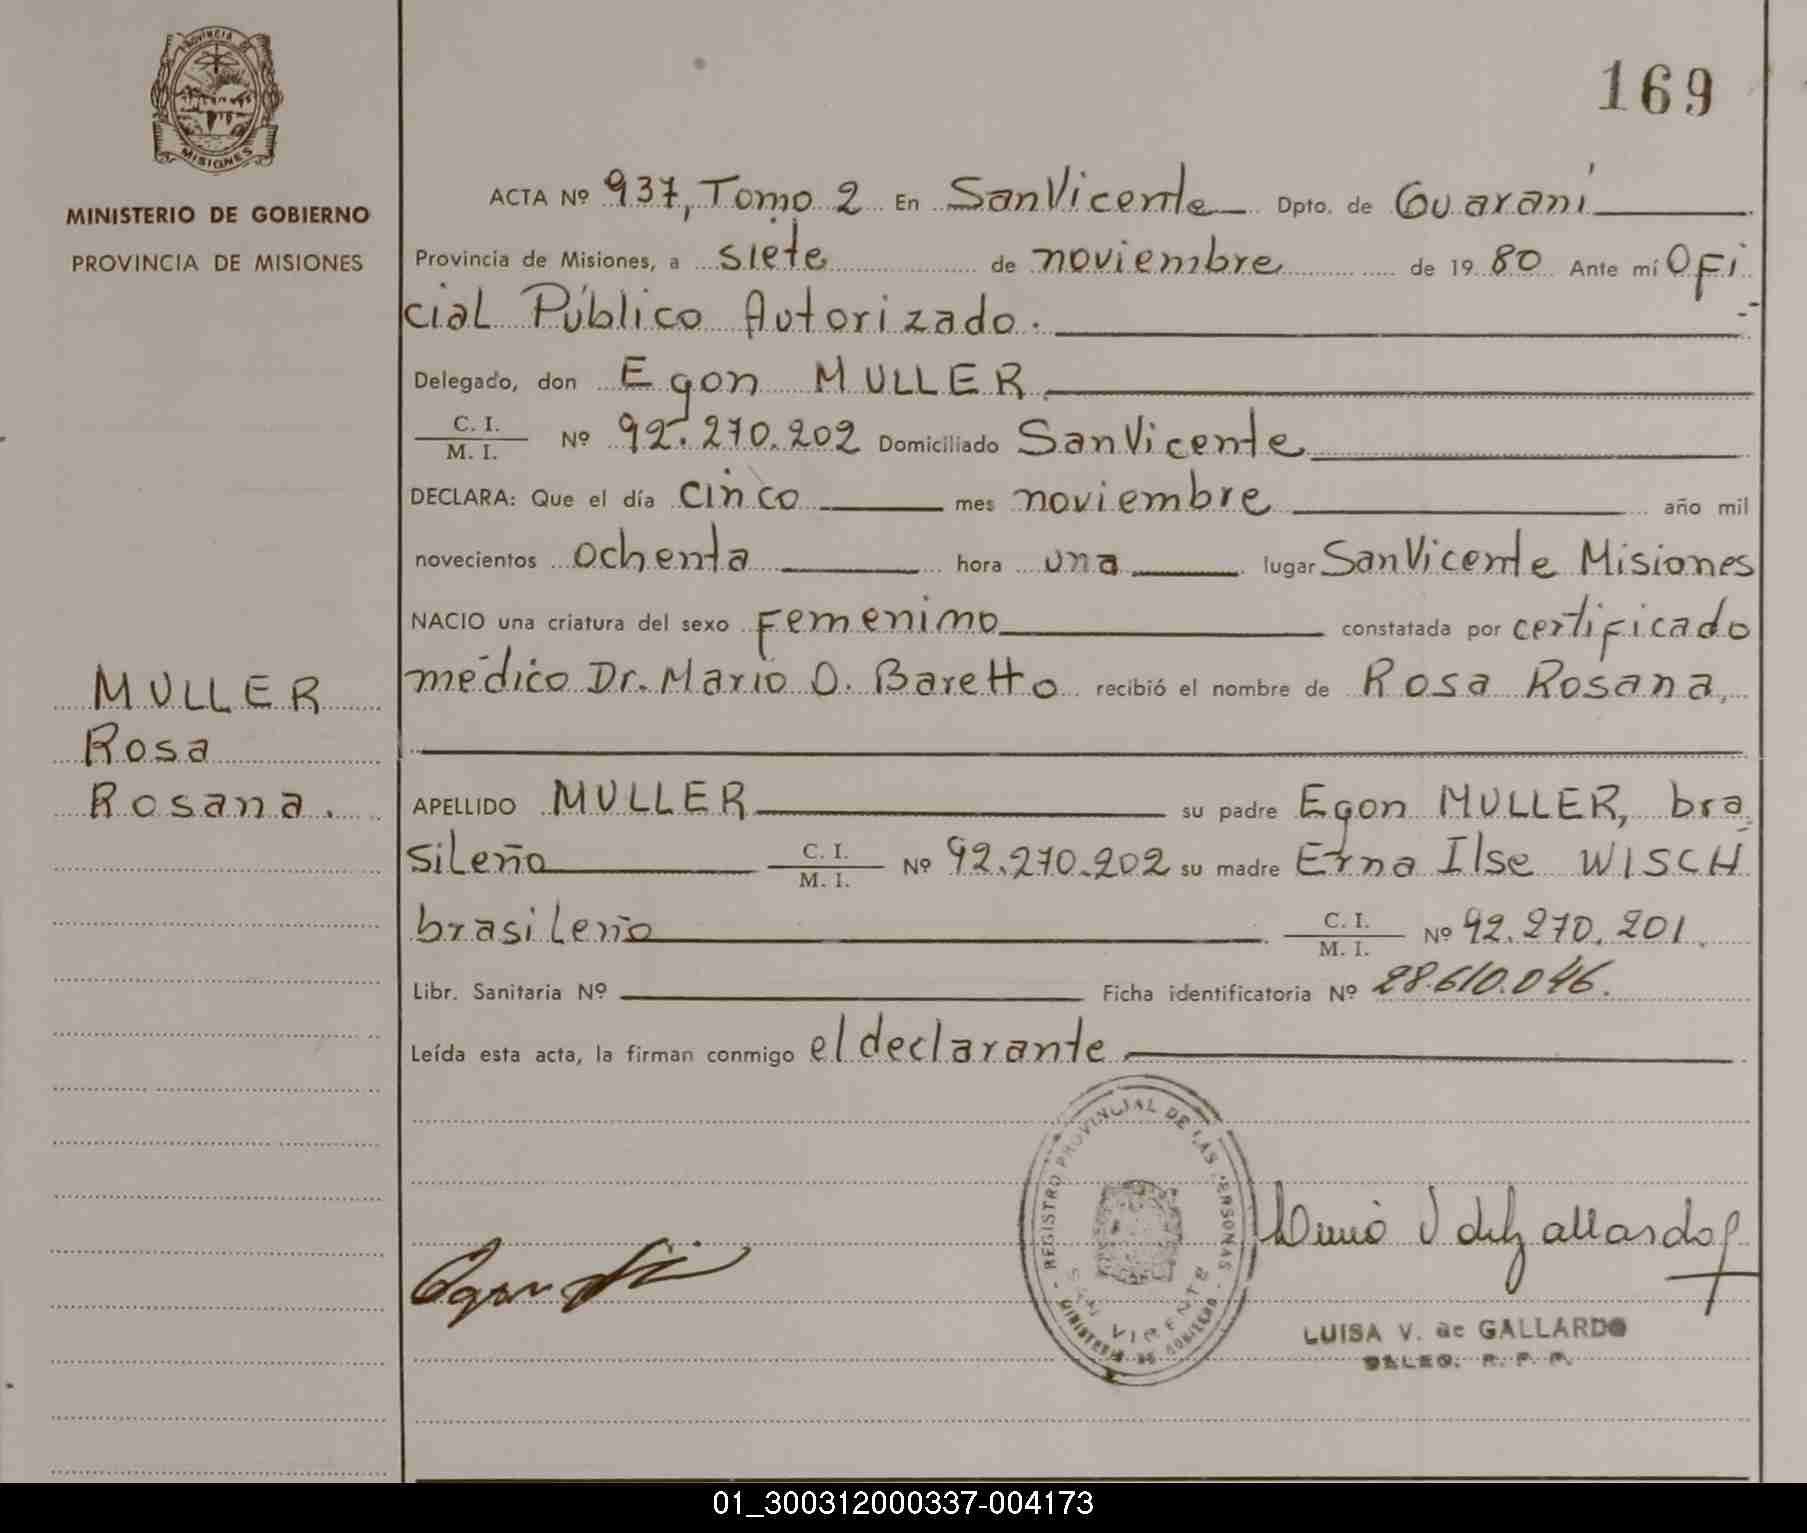 PROVINCIA DE
MISIONES
MINISTERIO DE GOBIERNO
PROVINCIA DE MISIONES
MULLER
Rosa
Rosana.
169
ACTA Nº 937, Tomo 2 En San Vicente Dpto. de Guaraní
Provincia de Misiones, a siete de noviembre de 1980 Ante mí Ofi
cial Público Autorizado.
Delegado, don Egon MULLER
C. I.
M. I. Nº 92.270.202 Domiciliado San Vicente
DECLARA: Que el día cinco mes noviembre año mil
novecientos ochenta hora una lugar San Vicente Misiones
NACIO una criatura del sexo femenino constatada por certificado
médico Dr. Mario O. Baretto recibió el nombre de Rosa Rosana,
APELLIDO MULLER su padre Egon MULLER, bra-
sileño C. I.
M. I. Nº 92.270.202 su madre Erna Ilse WISCH
brasileño C. I.
M. I. Nº 92.270.201.
Libr. Sanitaria Nº Ficha identificatoria Nº 28.610.046.
Leída esta acta, la firman conmigo el declarante
REGISTRO PROVINCIAL DE LAS PERSONAS
SAN VICENTE
MINISTERIO DE GOBIERNO
Egon
V de Gallardo
LUISA V. de GALLARDO
DELEG. R. P. P.
01_300312000337-004173